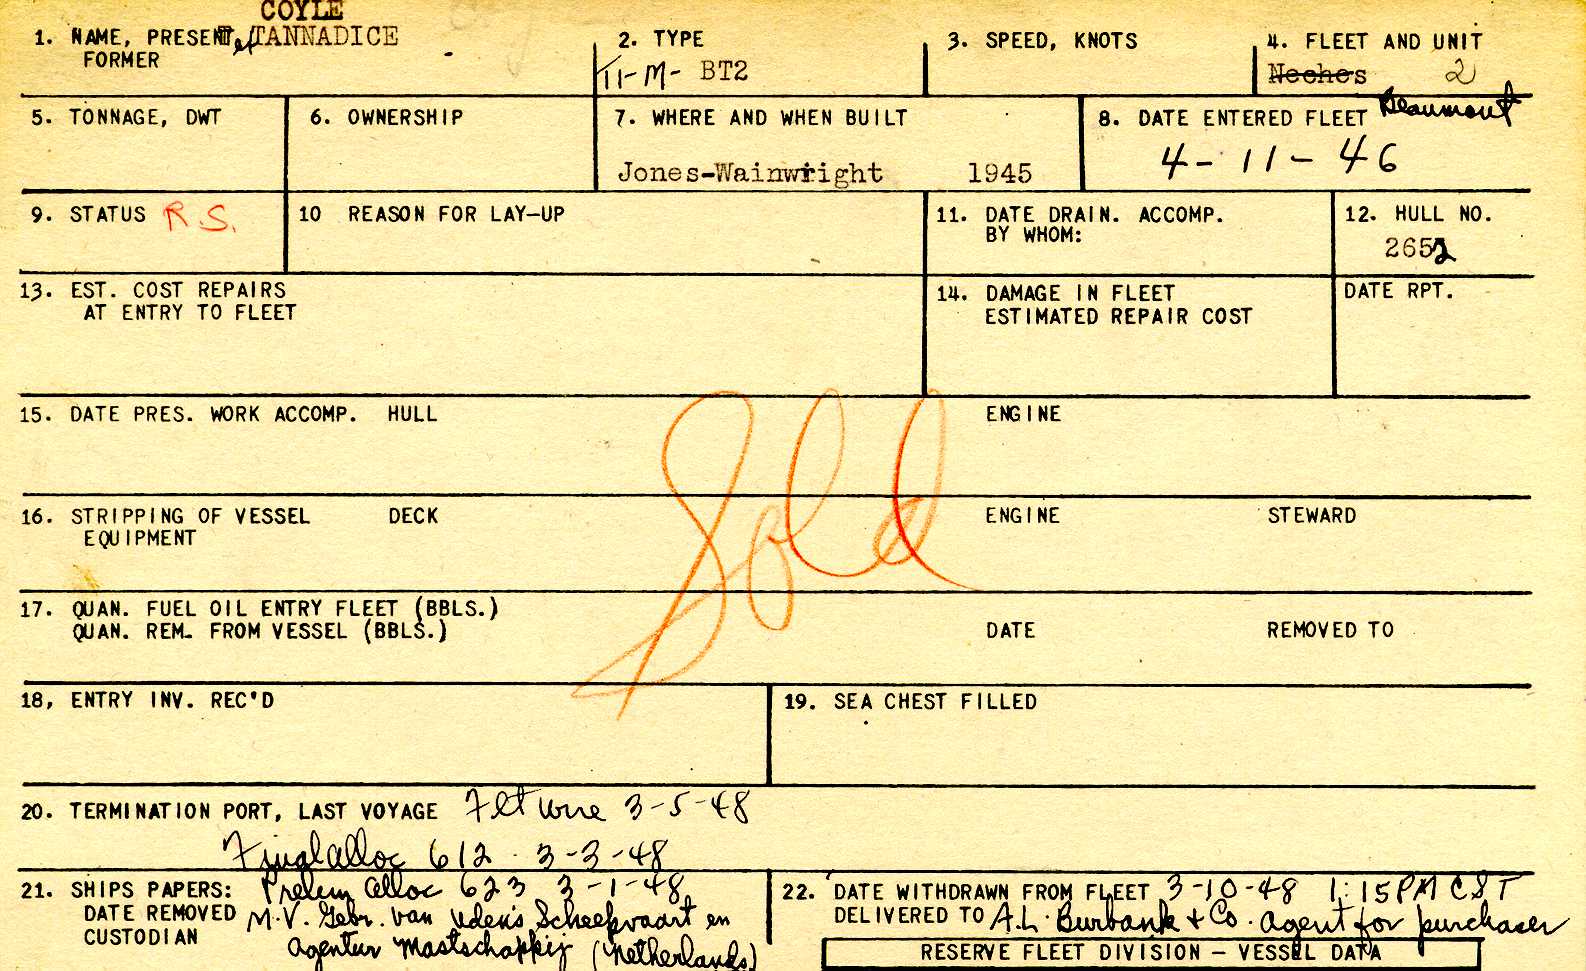 COYLE
1. NAME, PRESENT ex TANNADICE
FORMER
2. TYPE
T1-M- BT2
3. SPEED, KNOTS
4. FLEET AND UNIT
Neches 2
Beaumont
5. TONNAGE, DWT
6. OWNERSHIP
7. WHERE AND WHEN BUILT
Jones-Wainwright 1945
8. DATE ENTERED FLEET
4-11-46
9. STATUS R.S.
10 REASON FOR LAY-UP
11. DATE DRAIN. ACCOMP.
BY WHOM:
12. HULL NO.
2652
13. EST. COST REPAIRS
AT ENTRY TO FLEET
14. DAMAGE IN FLEET
ESTIMATED REPAIR COST
DATE RPT.
15. DATE PRES. WORK ACCOMP. HULL ENGINE
Sold
16. STRIPPING OF VESSEL DECK ENGINE STEWARD
EQUIPMENT
17. QUAN. FUEL OIL ENTRY FLEET (BBLS.)
QUAN. REM. FROM VESSEL (BBLS.) DATE REMOVED TO
18, ENTRY INV. REC'D
19. SEA CHEST FILLED
20. TERMINATION PORT, LAST VOYAGE Flt wire 3-5-48
Final alloc 612 3-3-48
21. SHIPS PAPERS: Prelim alloc 623 3-1-48
DATE REMOVED M.V. Gebr. van Uden's Scheepvaart en
CUSTODIAN Agentuur Maatschappij (Netherlands)
22. DATE WITHDRAWN FROM FLEET 3-10-48 1:15 PM CST
DELIVERED TO A.L. Burbank & Co. agent for purchaser
RESERVE FLEET DIVISION – VESSEL DATA